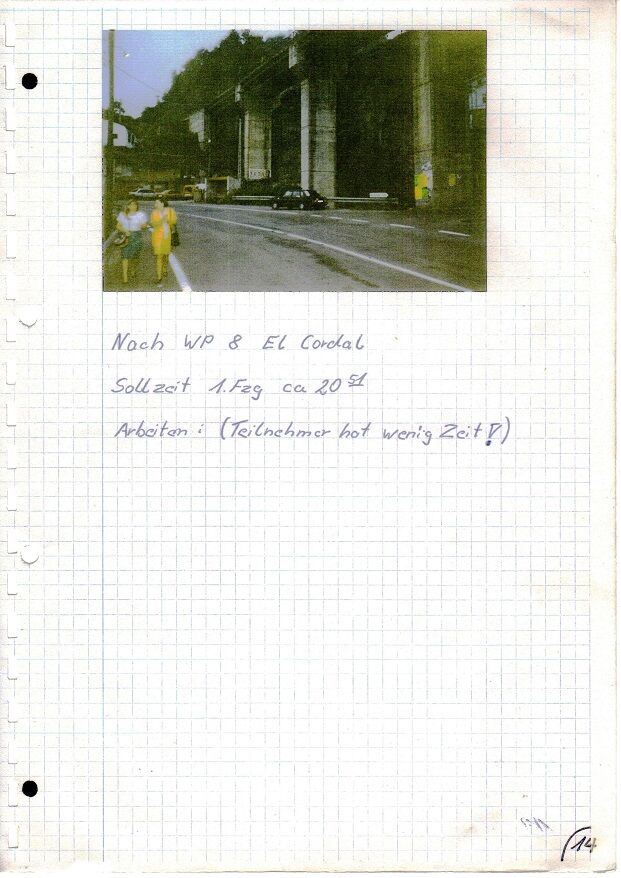 Nach WP 8 El Cordal
Sollzeit 1.Fzg ca 20 51
Arbeiten : (Teilnehmer hat wenig Zeit!)
14